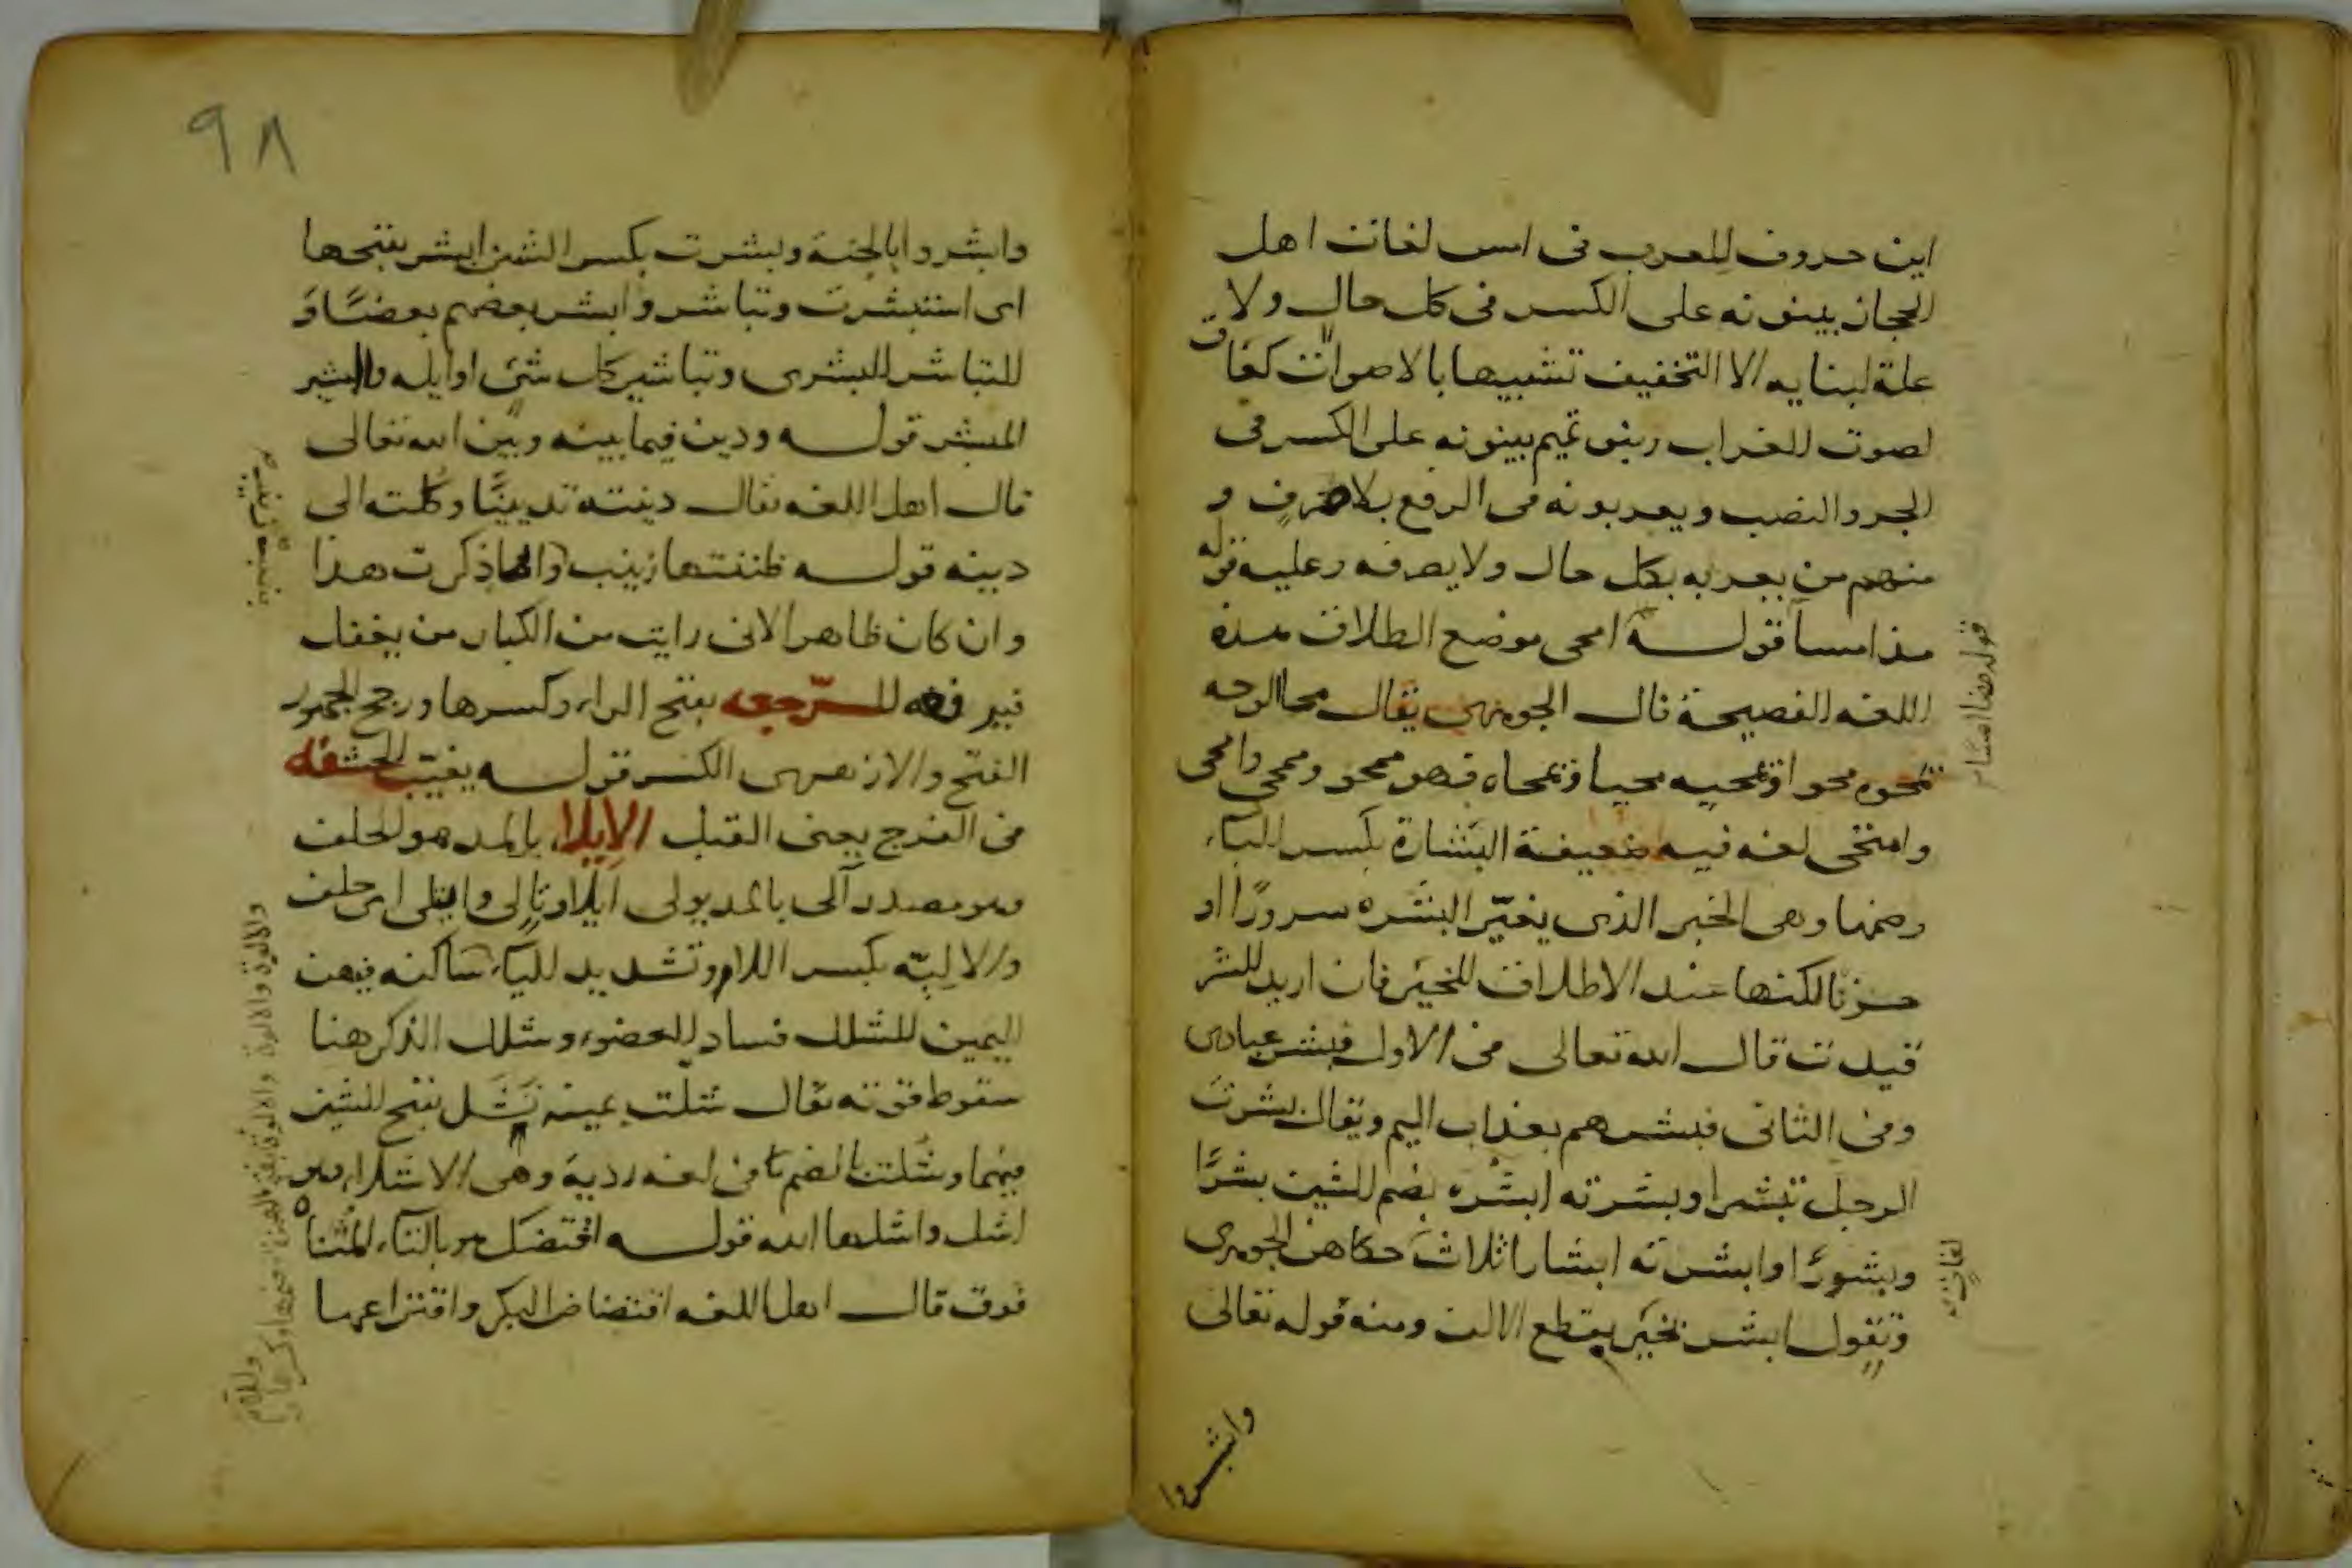 ابن خروف للعرب فى امس لغات اهل
الحجاز يبنونه على الكسر فى كل حال ولا
علة لبنايه الا التخفيف تشبيها بالاصوات كغاق
لصوت الغراب وبنو تميم يبنونه على الكسر فى
الجر والنصب ويعربونه فى الرفع بلا صرف و
منهم من يعربه بكل حال ولا يصرفه وعليه قوله
مذ امسا قوله امحى موضع الطلاق هذه
اللغه الفصيحة قال الجوهرى يقال محا لوحه
يمحوه محوا ويمحيه محيا ويمحاه فهو ممحو وممحى وامحى
وامتحى لغه فيه ضعيفة البشارة بكسر الباء
وضمها وهى الخبر الذى يغيّر البشره سرورًا او
حزنا لكنها عند الاطلاق للخير فان اريد الشر
قيدت قال الله تعالى فى الاول فبشر عبادى
وفى الثانى فبشرهم بعذاب اليم ويقال بشرت
الرجل تبشيرا وبشرته ابشُره بضم الشين بشرًا
وبشورًا وابشرته ابشارا ثلاث حكاهن الجوهرى
وتقول ابشر بخير بقطع الالف ومنه قوله تعالى
وابشروا
قوله مضا امسا
لغات
٩٨
وابشروا بالجنة وبشرت بكسر الشين ابشر بفتحها
اى استبشرت وتباشروا بشر بعضهم بعضًا و
التباشر البشرى وتباشير كل شئ اوايله والبشير
المبشر قوله ودين فيما بينه وبين الله تعالى
قال اهل اللغه يقال دينته تديينًا وكلته الى
دينه قوله ظننتها زينب وانما ذكرت هذا
وان كان ظاهرا لانى رايت من الكبار من يغفل
فيرفعه الرّجعه بفتح الراء وكسرها ورجح الجمهور
الفتح والازهرى الكسر قوله يغيّب الحشفه
فى الفرج يعنى القبل الايلاء بالمد هو الحلف
وهو مصدر آلى بالمد يولى ايلاء وتالى وايتلى اى حلف
والاليّه بكسر اللام وتشديد الياء ساكنه فيهن
اليمين الشلل فساد العضو وشلل الذكر هنا
سقوط قوته يقال شلت يمينه تَشَل بفتح الشين
فيهما وشُلت بالضم فى لغه رديه وهى الاشلاء وهو
اشل واشلها الله قوله افتضك هو بالتاء المثناه
فوق قال اهل اللغه افتضاض البكر وافتراعها
والالوة والالوة والالوة